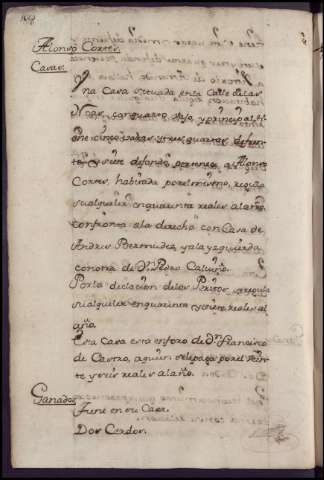 Alonso Cortes.
Casas.
Vna Casa situada en la Calle de las
con quarto vajo, y principal, ti
ene cinco varas y tres quartas de fren
te, y siete de fondo, pertenece a Alonso
Cortes, havitada por el mismo, regulo
su alquiler en quarenta reales al año.
confronta a la derecha con Casa de
Andres Bermudez, y a la yzquierda
con otra de Dn. Pedro
Por la declaracion de los Peritos, se regulo
su alquiler en quarenta y siete reales al
año.
Esta Casa esta en foro de Dn. Francisco
de Castro, a quien se le paga por el Vein
te y seis reales al año.
Ganados
Tiene en su Casa.
Dos Cerdos.